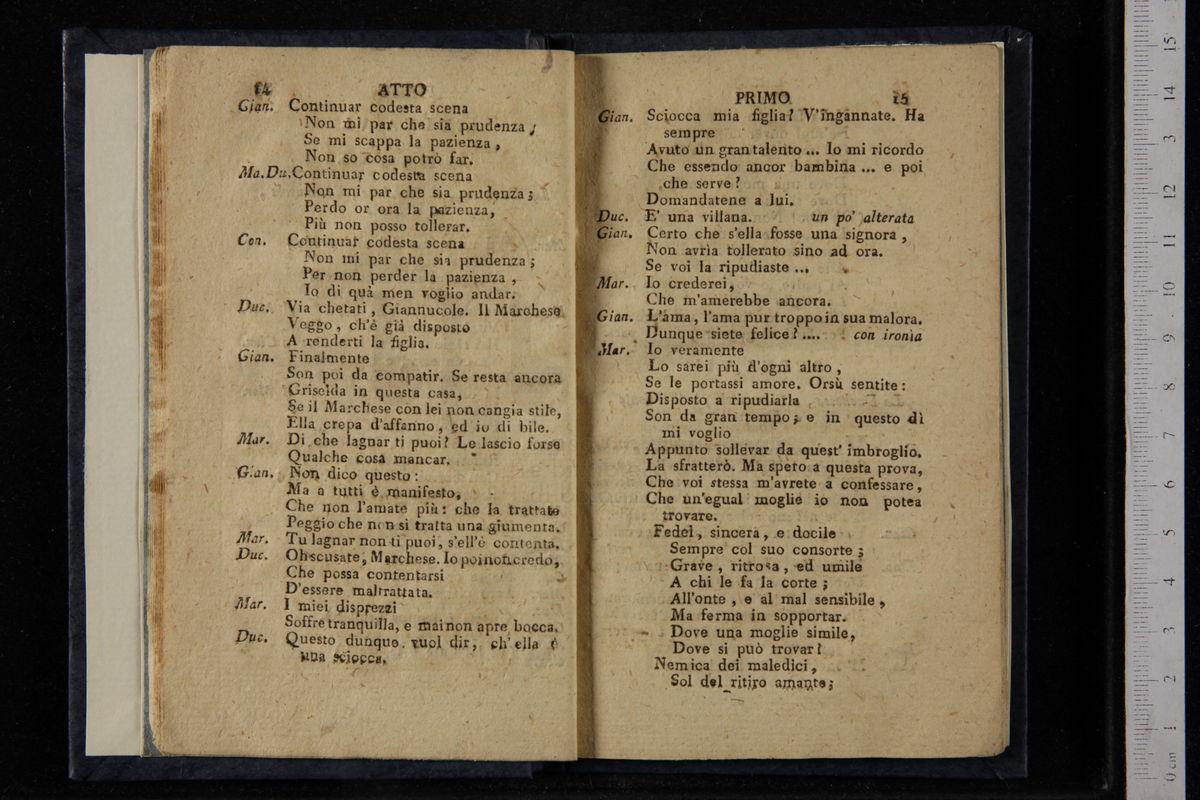 14 ATTO
Gian. Continuar codesta scena
Non mi par che sia prudenza;
Se mi scappa la pazienza,
Non so cosa potrò far.
Ma.Du. Continuar codesta scena
Non mi par che sia prudenza;
Perdo or ora la pazienza,
Più non posso tollerar.
Con. Continuar codesta scena
Non mi par che sia prudenza;
Per non perder la pazienza,
Io di quà men voglio andar.
Duc. Via chetati, Giannucole. Il Marchese
Veggo, ch'è già disposto
A renderti la figlia.
Gian. Finalmente
Son poi da compatir. Se resta ancora
Griselda in questa casa,
Se il Marchese con lei non cangia stile,
Ella crepa d'affanno, ed io di bile.
Mar. Di che lagnar ti puoi? Le lascio forse
Qualche cosa mancar.
Gian. Non dico questo:
Ma a tutti è manifesto,
Che non l'amate più: che la trattate
Peggio che non si tratta una giumenta.
Mar. Tu lagnar non ti puoi, s'ell'è contenta.
Duc. Oh scusate, Marchese. Io poi non credo,
Che possa contentarsi
D'essere maltrattata.
Mar. I miei disprezzi
Soffre tranquilla, e mai non apre bocca.
Duc. Questo dunque vuol dir, ch'ella è
una sciocca.
PRIMO 15
Gian. Sciocca mia figlia? V'ingannate. Ha
sempre
Avuto un gran talento ... Io mi ricordo
Che essendo ancor bambina ... e poi
che serve?
Domandatene a lui.
Duc. E' una villana. un po' alterata
Gian. Certo che s'ella fosse una signora,
Non avrìa tollerato sino ad ora.
Se voi la ripudiaste ...
Mar. Io crederei,
Che m'amerebbe ancora.
Gian. L'ama, l'ama pur troppo in sua malora.
Dunque siete felice? .... con ironìa
Mar. Io veramente
Lo sarei più d'ogni altro,
Se le portassi amore. Orsù sentite:
Disposto a ripudiarla
Son da gran tempo; e in questo dì
mi voglio
Appunto sollevar da quest' imbroglio.
La sfratterò. Ma spero a questa prova,
Che voi stessa m'avrete a confessare,
Che un'egual moglie io non potea
trovare.
Fedel, sincera, e docile
Sempre col suo consorte;
Grave, ritrosa, ed umile
A chi le fa la corte;
All'onte, e al mal sensibile,
Ma ferma in sopportar.
Dove una moglie simile,
Dove si può trovar?
Nemica dei maledici,
Sol del ritiro amante;